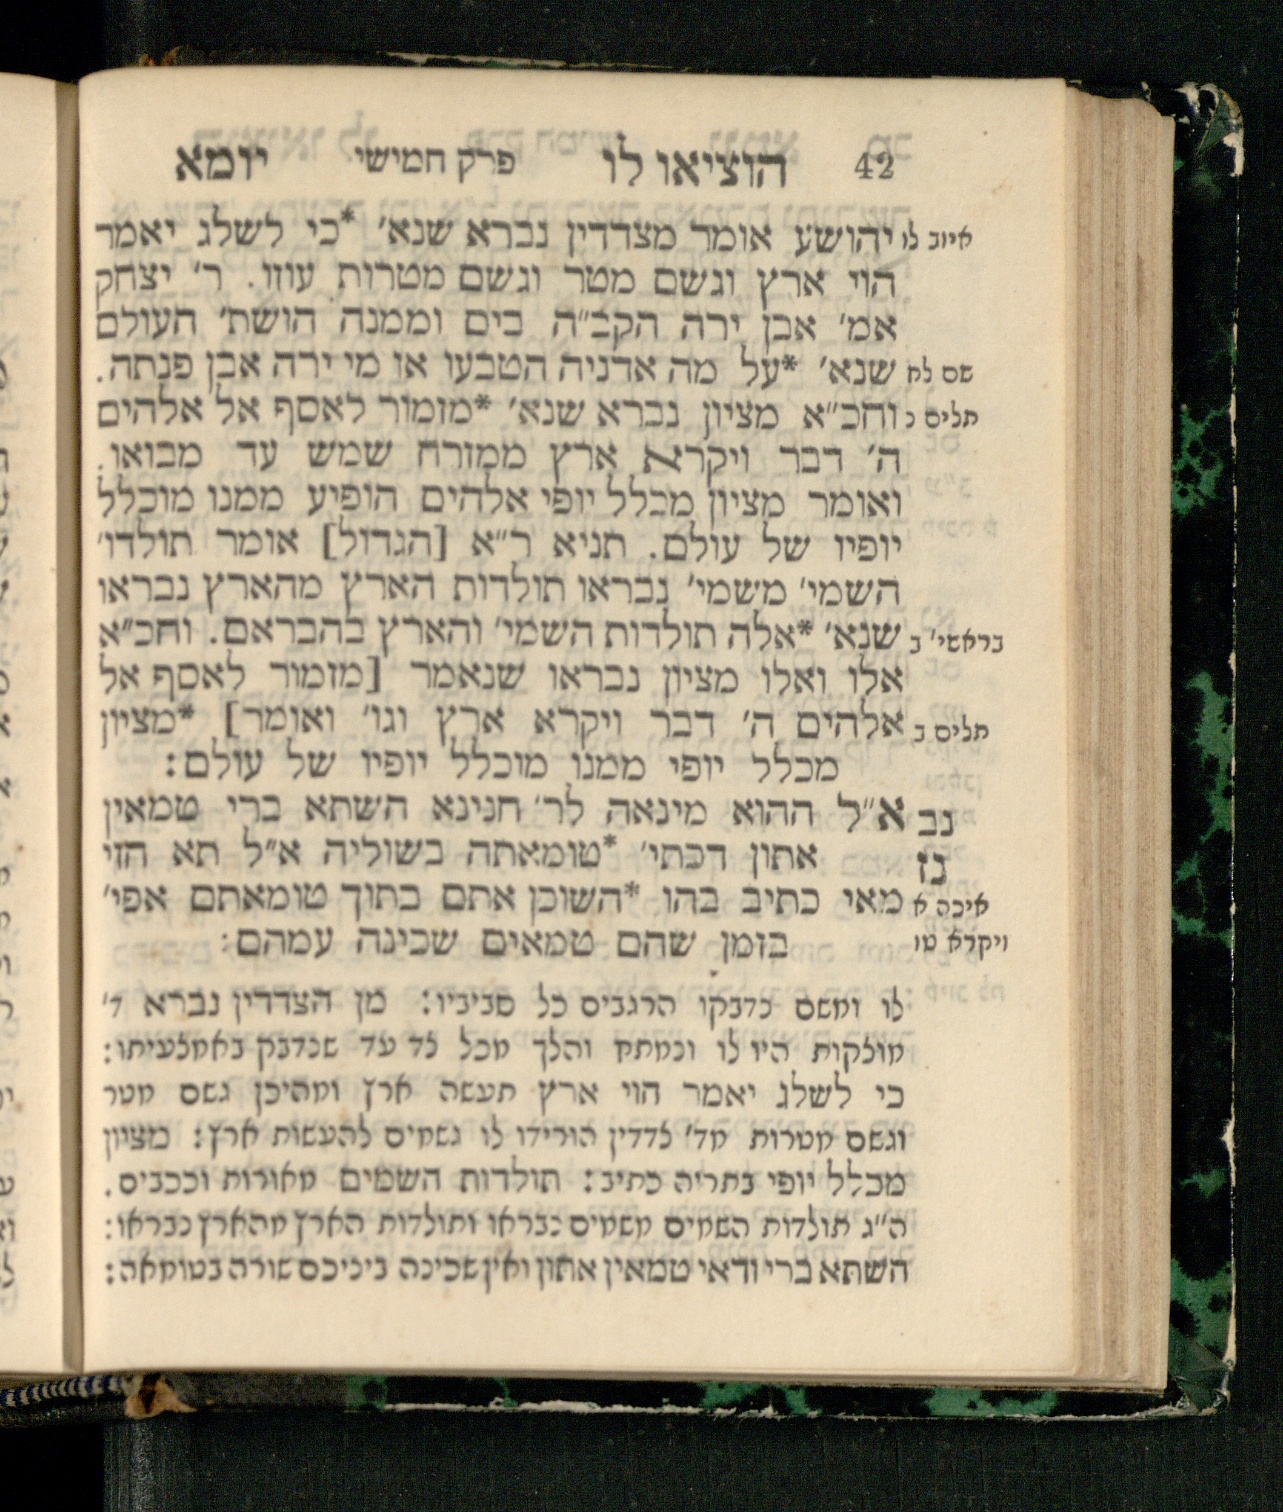 42 הוציאו לו פרק חמישי יומא
איוב לז יהושע אומר מצדדין נברא שנא׳ *כי לשלג יאמר
הוי ארץ וגשם מטר וגשם מטרות עוזו. ר׳ יצחק
אמ׳ אבן ירה הקב״ה בים וממנה הושת׳ העולם
שם לח שנא׳ *על מה אדניה הטבעו או מי ירה אבן פנתה.
תלים נ וחכ״א מציון נברא שנא׳ *מזמור לאסף אל אלהים
ה׳ דבר ויקרא ארץ ממזרח שמש עד מבואו.
ואומר מציון מכלל יופי אלהים הופיע ממנו מוכלל
יופיו של עולם. תניא ר״א [הגדול] אומר תולדו׳
השמי׳ משמי׳ נבראו תולדות הארץ מהארץ נבראו
בראשי׳ ב שנא׳ *אלה תולדות השמי׳ והארץ בהבראם. וחכ״א
אלו ואלו מציון נבראו שנאמר [מזמור לאסף אל
תלים נ אלהים ה׳ דבר ויקרא ארץ וגו׳ ואומר] *מציון
מכלל יופי ממנו מוכלל יופיו של עולם:
נב א״ל ההוא מינאה לר׳ חנינא השתא ברי טמאין
נז אתון דכתי׳ *טומאתה בשוליה א״ל תא חזי
איכה א מאי כתיב בהו *השוכן אתם בתוך טומאתם אפי׳
ויקרא טו בזמן שהם טמאים שכינה עמהם:
לו ומשם נדבקו הרגבים כל סביביו: מן הצדדין נברא ד׳
חולקות היו לו ונמתח והלך מכל צד עד שנדבק באמצעיתו:
כי לשלג יאמר הוי ארץ תעשה ארץ ומהיכן גשם מטר
וגשם מטרות מד׳ צדדין הורידו לו גשמים להעשות ארץ: מציון
מכלל יופי בתריה כתיב: תולדות השמים מאורות וככבים.
ה״ג תולדות השמים משמים נבראו ותולדות הארץ מהארץ נבראו:
השתא ברי ודאי טמאין אתון ואין שכינה ביניכם שורה בטומאה: